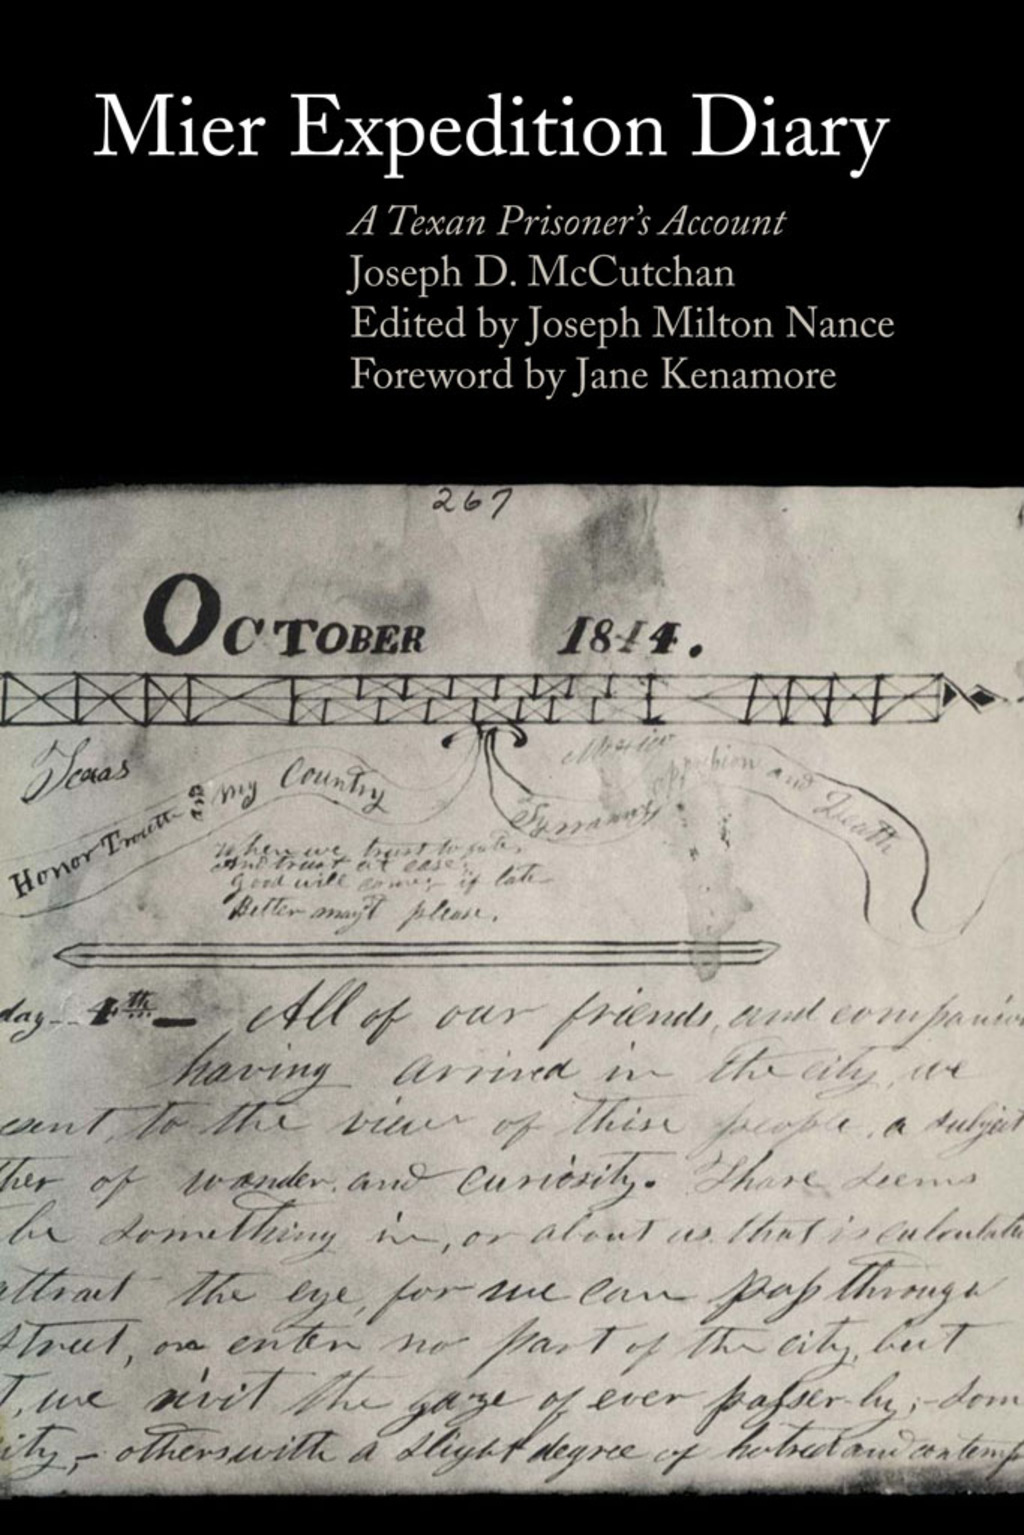 Mier Expedition Diary
A Texan Prisoner's Account
Joseph D. McCutchan
Edited by Joseph Milton Nance
Foreword by Jane Kenamore
267
OCTOBER 1844.
Texas
Mexico
Honor Trouth and my Country
Tyranny oppression and Death
When we trust to fate,
And trust at ease;
Good will come; if late
Better may't please.
day - 4th — All of our friends, and compani
having arrived in the city, we
esent, to the view of these people, a subject
ther of wonder, and curiosity. Thare seems
be something in, or about us that is calculate
attract the eye, for we can pass through
street, or enter no part of the city, but
t, we rivit the gaze of ever passer-by; - som
ity, - others with a slight degree of hatred and contemp